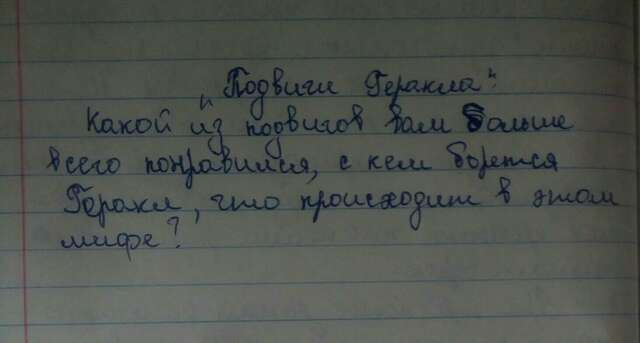 „Подвиги Геракла".
Какой из подвигов вам больше
всего понравился, с кем борется
Геракл, что происходит в этом
мифе?